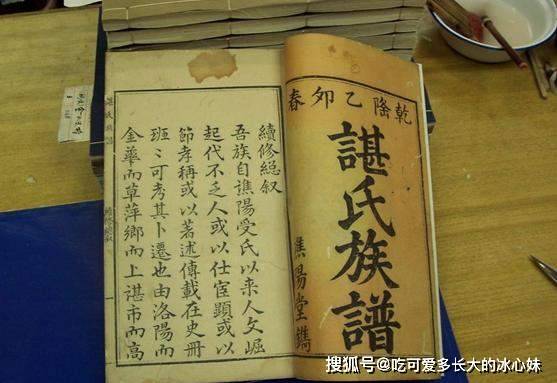 乾隆乙卯春
諶氏族譜
譙陽堂鐫
續修總叙
吾族自譙陽受氏以來人文崛
起代不乏人或以仕宦顯或以
節孝稱或以著述傳載在史冊
班〻可考其卜遷也由洛陽而
金華而草萍鄉而上諶市而高
搜狐号@吃可爱多长大的冰心妹